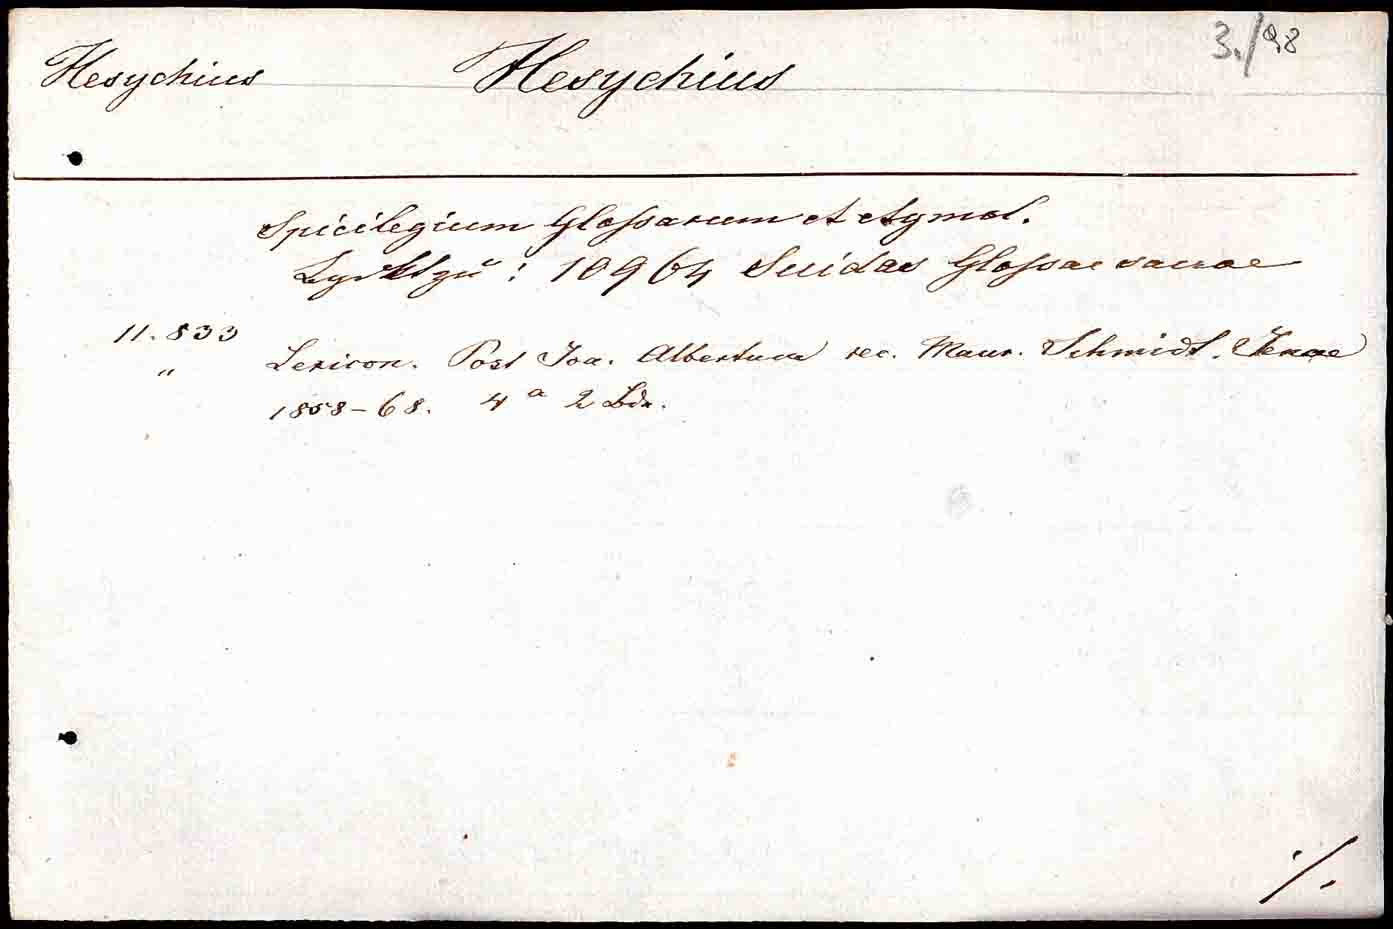 3./98
Hesychius Hesychius
Spicilegium Glossarum et etymol.
10964 Suidas Glossae sacrae
11.833 Lexicon. Post Joa. Albertum rec. Maur. Schmidt. Jenae
" 1858-68. 4° 2 Bde.